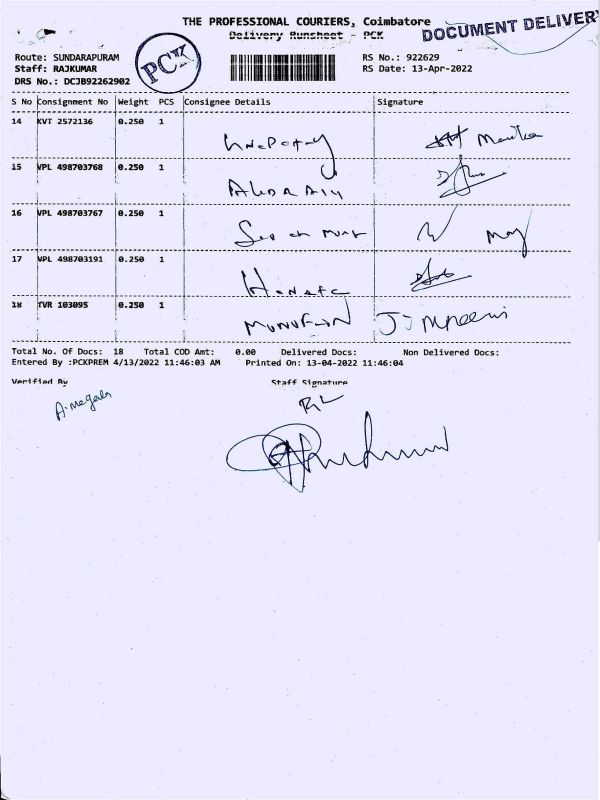 THE PROFESSIONAL COURIERS, Coimbatore
Delivery Runsheet - PCK
DOCUMENT DELIVERY
PCK
Route: SUNDARAPURAM
Staff: RAJKUMAR
DRS No.: DCJB92262902
RS No.: 922629
RS Date: 13-Apr-2022
S No Consignment No Weight PCS Consignee Details Signature
14 KVT 2572136 0.250 1
15 VPL 498703768 0.250 1
16 VPL 498703767 0.250 1
17 VPL 498703191 0.250 1
18 TVR 103095 0.250 1
Total No. Of Docs: 18 Total COD Amt: 0.00 Delivered Docs: Non Delivered Docs:
Entered By :PCKPREM 4/13/2022 11:46:03 AM Printed On: 13-04-2022 11:46:04
Verified By Staff Signature
A.megala